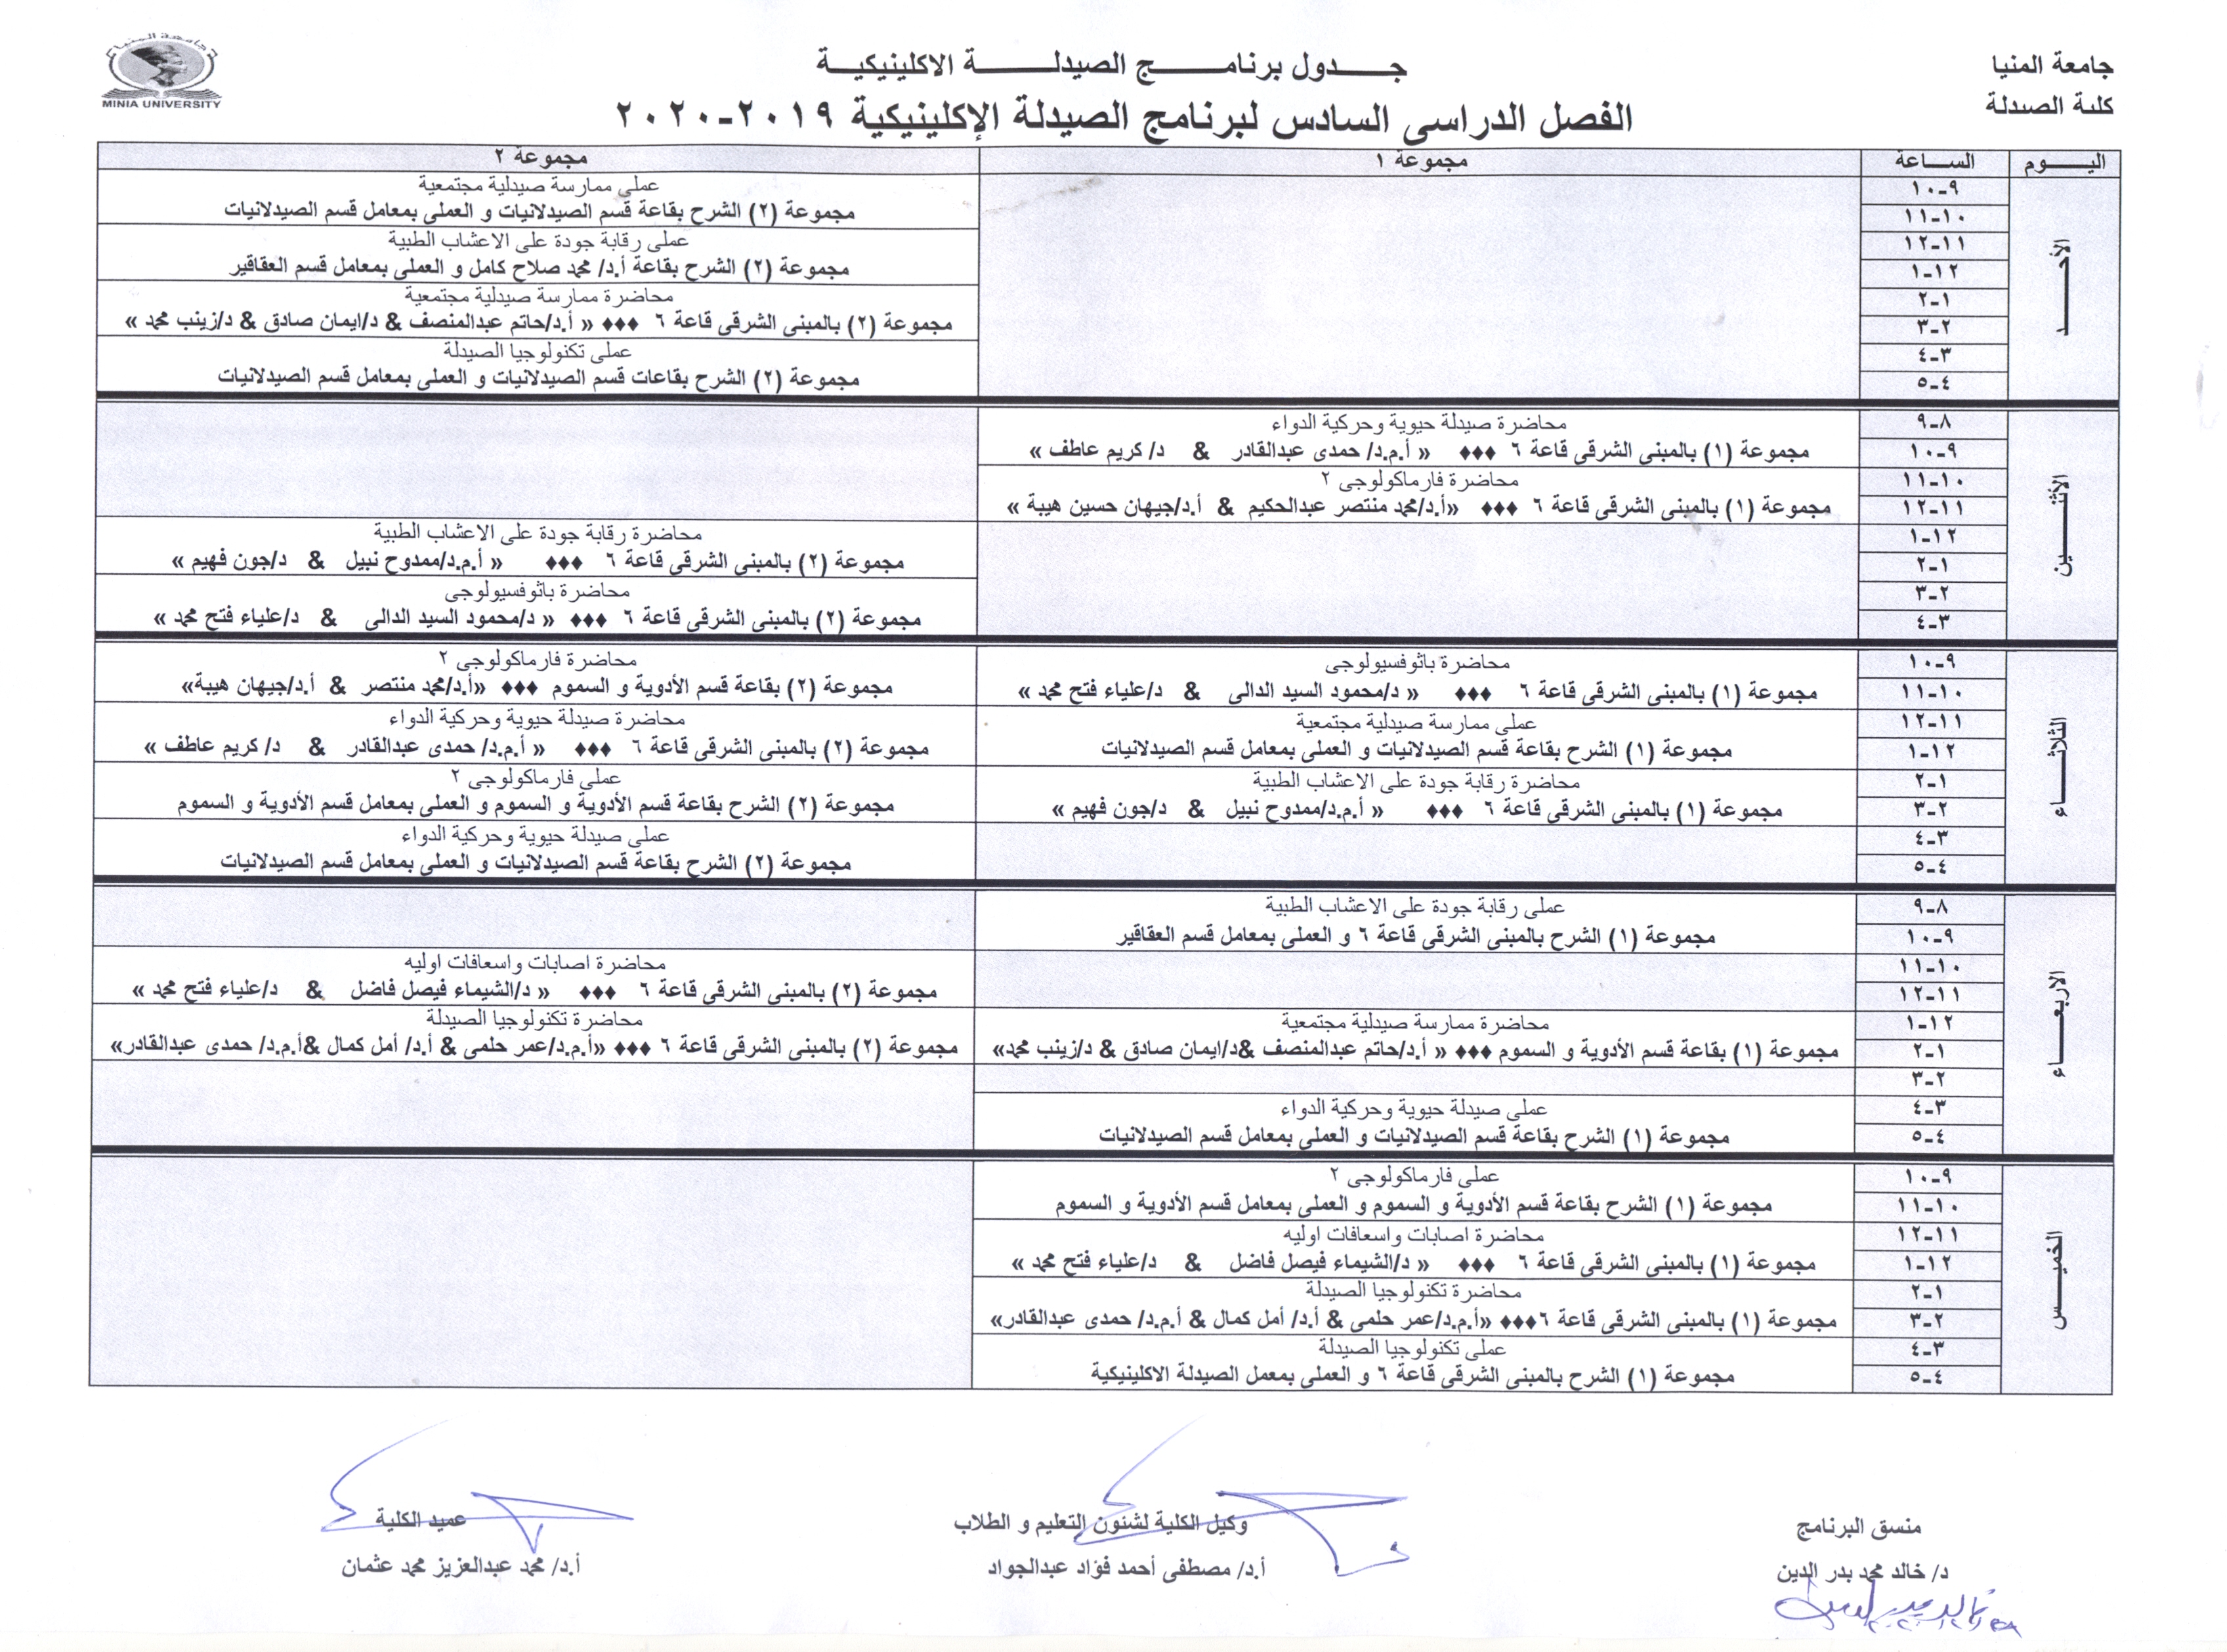 جامعة المنيا
كلية الصيدلة
MINIA UNIVERSITY
جـــدول برنامـــج الصيدلـــة الاكلينيكيـة
الفصل الدراسى السادس لبرنامج الصيدلة الإكلينيكية ٢٠١٩-٢٠٢٠
اليـــوم الســاعة مجموعة ١ مجموعة ٢
الأحـــد
٩-١٠
١٠-١١
عملى ممارسة صيدلية مجتمعية
مجموعة (٢) الشرح بقاعة قسم الصيدلانيات و العملى بمعامل قسم الصيدلانيات
١١-١٢
١٢-١
عملى رقابة جودة على الاعشاب الطبية
مجموعة (٢) الشرح بقاعة أ.د/ محمد صلاح كامل و العملى بمعامل قسم العقاقير
١-٢
٢-٣
محاضرة ممارسة صيدلية مجتمعية
مجموعة (٢) بالمبنى الشرقى قاعة ٦ ♦♦♦ « أ.د/حاتم عبدالمنصف & د/ايمان صادق & د/زينب محمد »
٣-٤
٤-٥
عملى تكنولوجيا الصيدلة
مجموعة (٢) الشرح بقاعات قسم الصيدلانيات و العملى بمعامل قسم الصيدلانيات
الأثنـــين
٨-٩
٩-١٠
محاضرة صيدلة حيوية وحركية الدواء
مجموعة (١) بالمبنى الشرقى قاعة ٦ ♦♦♦ « أ.م.د/ حمدى عبدالقادر & د/ كريم عاطف »
١٠-١١
١١-١٢
محاضرة فارماكولوجى ٢
مجموعة (١) بالمبنى الشرقى قاعة ٦ ♦♦♦ «أ.د/محمد منتصر عبدالحكيم & أ.د/جيهان حسين هيبة »
١٢-١
١-٢
محاضرة رقابة جودة على الاعشاب الطبية
مجموعة (٢) بالمبنى الشرقى قاعة ٦ ♦♦♦ « أ.م.د/ممدوح نبيل & د/جون فهيم »
٢-٣
٣-٤
محاضرة باثوفسيولوجى
مجموعة (٢) بالمبنى الشرقى قاعة ٦ ♦♦♦ « د/محمود السيد الدالى & د/علياء فتح محمد »
الثلاثـــاء
٩-١٠
١٠-١١
محاضرة باثوفسيولوجى
مجموعة (١) بالمبنى الشرقى قاعة ٦ ♦♦♦ « د/محمود السيد الدالى & د/علياء فتح محمد »
محاضرة فارماكولوجى ٢
مجموعة (٢) بقاعة قسم الأدوية و السموم ♦♦♦ «أ.د/محمد منتصر & أ.د/جيهان هيبة»
١١-١٢
١٢-١
عملى ممارسة صيدلية مجتمعية
مجموعة (١) الشرح بقاعة قسم الصيدلانيات و العملى بمعامل قسم الصيدلانيات
محاضرة صيدلة حيوية وحركية الدواء
مجموعة (٢) بالمبنى الشرقى قاعة ٦ ♦♦♦ « أ.م.د/ حمدى عبدالقادر & د/ كريم عاطف »
١-٢
٢-٣
محاضرة رقابة جودة على الاعشاب الطبية
مجموعة (١) بالمبنى الشرقى قاعة ٦ ♦♦♦ « أ.م.د/ممدوح نبيل & د/جون فهيم »
عملى فارماكولوجى ٢
مجموعة (٢) الشرح بقاعة قسم الأدوية و السموم و العملى بمعامل قسم الأدوية و السموم
٣-٤
٤-٥
عملى صيدلة حيوية وحركية الدواء
مجموعة (٢) الشرح بقاعة قسم الصيدلانيات و العملى بمعامل قسم الصيدلانيات
الاربعـــاء
٨-٩
٩-١٠
عملى رقابة جودة على الاعشاب الطبية
مجموعة (١) الشرح بالمبنى الشرقى قاعة ٦ و العملى بمعامل قسم العقاقير
١٠-١١
١١-١٢
محاضرة اصابات واسعافات اوليه
مجموعة (٢) بالمبنى الشرقى قاعة ٦ ♦♦♦ « د/الشيماء فيصل فاضل & د/علياء فتح محمد »
١٢-١
١-٢
محاضرة ممارسة صيدلية مجتمعية
مجموعة (١) بقاعة قسم الأدوية و السموم ♦♦♦ « أ.د/حاتم عبدالمنصف &د/ايمان صادق & د/زينب محمد»
محاضرة تكنولوجيا الصيدلة
مجموعة (٢) بالمبنى الشرقى قاعة ٦ ♦♦♦ «أ.م.د/عمر حلمى & أ.د/ أمل كمال &أ.م.د/ حمدى عبدالقادر»
٢-٣
٣-٤
٤-٥
عملى صيدلة حيوية وحركية الدواء
مجموعة (١) الشرح بقاعة قسم الصيدلانيات و العملى بمعامل قسم الصيدلانيات
الخميـــس
٩-١٠
١٠-١١
عملى فارماكولوجى ٢
مجموعة (١) الشرح بقاعة قسم الأدوية و السموم و العملى بمعامل قسم الأدوية و السموم
١١-١٢
١٢-١
محاضرة اصابات واسعافات اوليه
مجموعة (١) بالمبنى الشرقى قاعة ٦ ♦♦♦ « د/الشيماء فيصل فاضل & د/علياء فتح محمد »
١-٢
٢-٣
محاضرة تكنولوجيا الصيدلة
مجموعة (١) بالمبنى الشرقى قاعة ٦♦♦♦ «أ.م.د/عمر حلمى & أ.د/ أمل كمال & أ.م.د/ حمدى عبدالقادر»
٣-٤
٤-٥
عملى تكنولوجيا الصيدلة
مجموعة (١) الشرح بالمبنى الشرقى قاعة ٦ و العملى بمعمل الصيدلة الاكلينيكية
منسق البرنامج
د/ خالد محمد بدر الدين
وكيل الكلية لشئون التعليم و الطلاب
أ.د/ مصطفى أحمد فؤاد عبدالجواد
عميد الكلية
أ.د/ محمد عبدالعزيز محمد عثمان